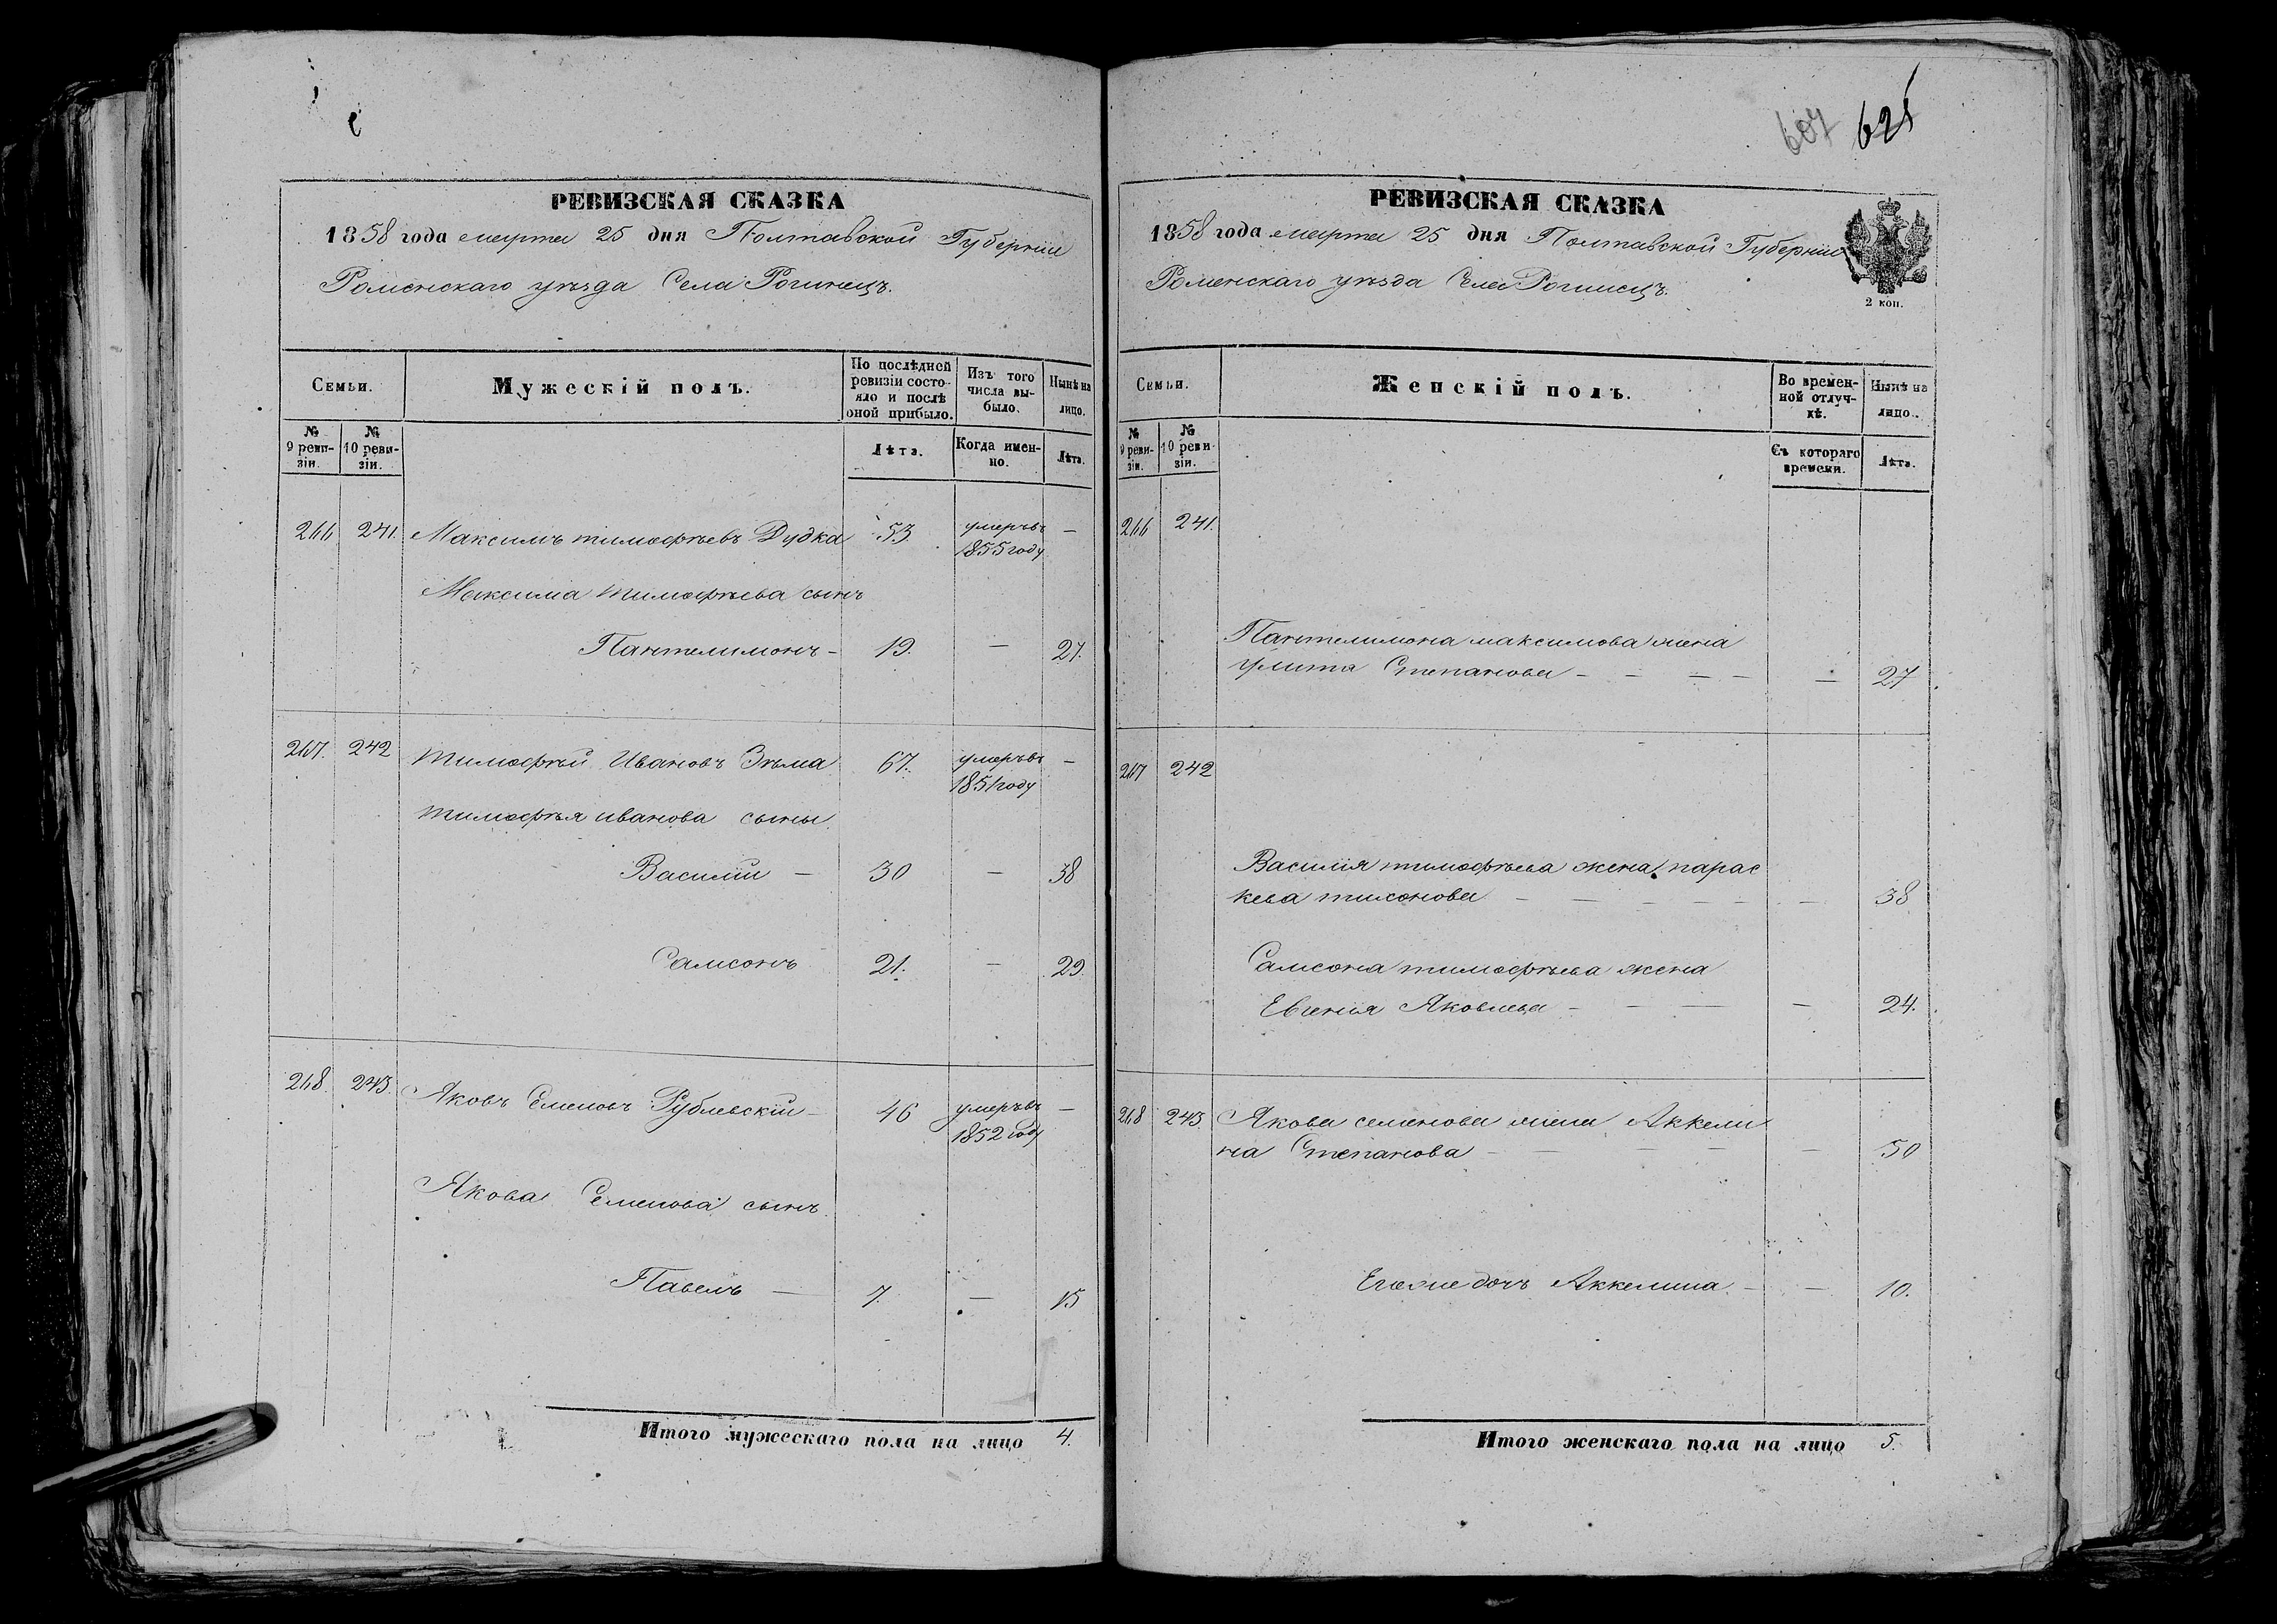 607 625
РЕВИЗСКАЯ СКАЗКА
1858 года марта 25 дня Полтавской Губерніи
Роменскаго уѣзда Села Рогинецъ.
Семьи.
Мужескій полъ.
По послѣдней ревизіи состояло и послѣ оной прибыло.
Изъ того числа выбыло.
Нынѣ на лицо.
№ 9 ревизіи.
№ 10 ревизіи.
Лѣта.
Когда именно.
Лѣта.
266 241. Максимъ тимофѣевъ Дудка 53. умеръвъ —
1855 году
Максима тимофѣева сынъ
Пантелимонъ - 19. — 27.
267. 242 тимофѣй Ивановъ Зѣма 67. умеръвъ —
1851 году
тимофѣя иванова сыны
Василій — 30 — 38
Самсонъ 21. — 29.
268. 243. Яковъ Семеновъ Рублевскій - 46 умеръвъ —
1852 году
Якова Семенова сынъ
Павелъ — 7. — 15
Итого мужескаго пола на лицо 4.
РЕВИЗСКАЯ СКАЗКА
1858 года марта 25 дня Полтавской Губерніи
Роменскаго уѣзда Села Рогинецъ.
2 коп.
Семьи.
Женскій полъ.
Во временной отлучкѣ.
Нынѣ на лицо.
№ 9 ревизіи.
№ 10 ревизіи.
Съ котораго времени.
Лѣта.
266 241.
Пантелимона максимова жена
улита Степанова - - - - — 27
267 242
Василія тимофѣева жена парас
кева тихонова — — — — — 38
Самсона тимофѣева жена
Евгенія Яковлева - — — — 24.
268 243. Якова семенова жена Аккели
на Степанова - — — — — 50
Егоже дочъ Аккелина. - — 10.
Итого женскаго пола на лицо 5.